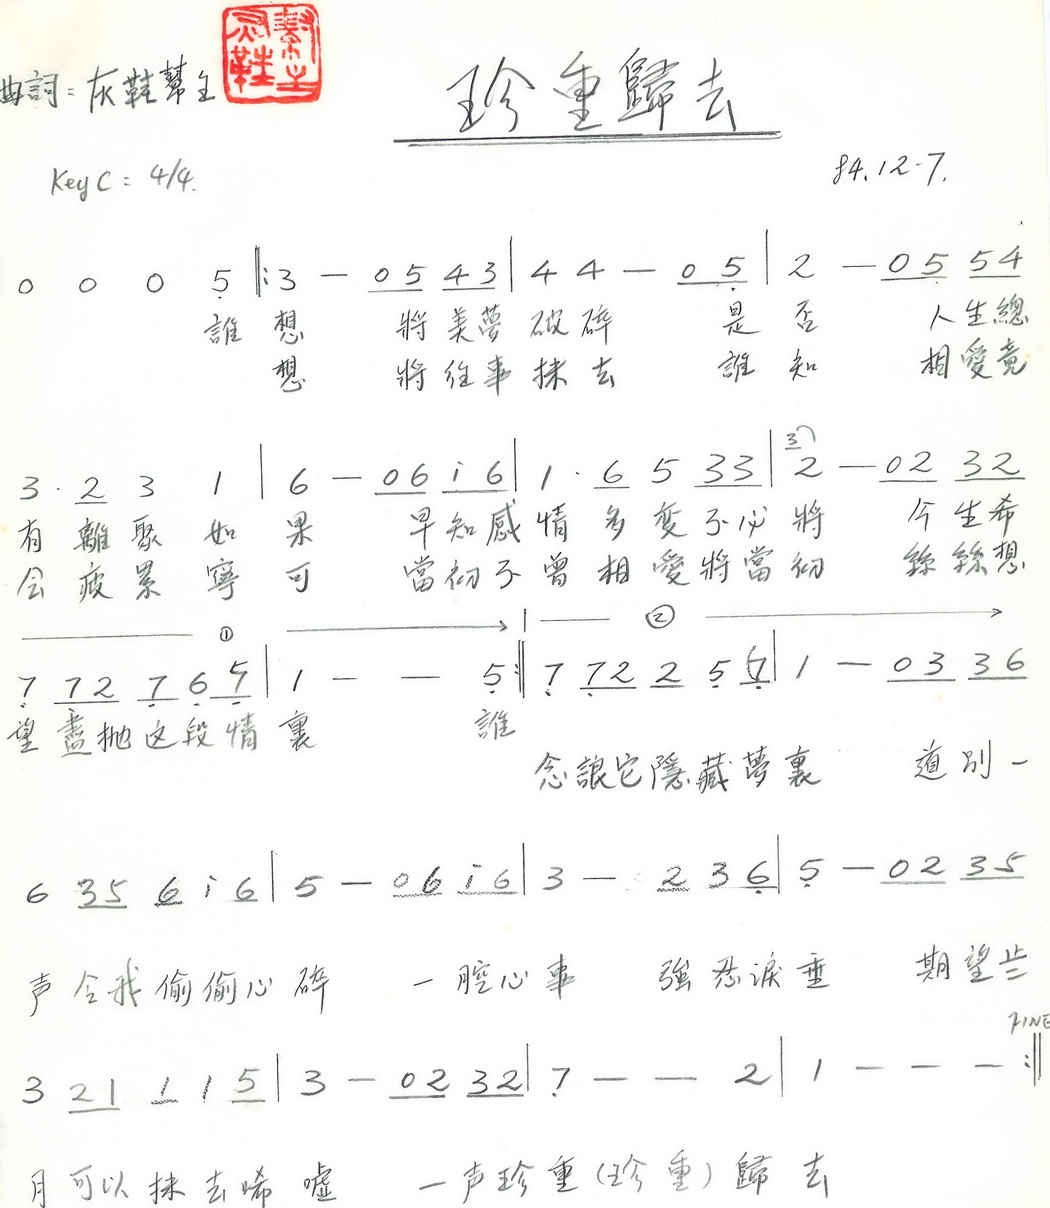 曲詞：灰鞋幫主
灰鞋幫主
珍重歸去
Key C: 4/4.
84.12.7.
0 0 0 5 ‖: 3 — 0 5 4 3 | 4 4 — 0 5 | 2 — 0 5 5 4
誰 想 將 美 夢 破 碎 是 否 人 生 總
想 將 往 事 抹 去 誰 知 相 愛 竟
3 · 2 3 1 | 6 — 0 6 i 6 | 1 · 6 5 3 3 | 3 2 — 0 2 3 2
有 離 聚 如 果 早 知 感 情 多 变 不 必 將 今 生 希
会 疲 累 寧 可 當 初 不 曾 相 愛 將 當 初 絲 絲 想
① ②
7 7 2 7 6 5 | 1 — — 5 :‖ 7 7 2 2 5 | 1 — 0 3 3 6
望 盡 拋 这 段 情 裏 誰
念 讓 它 隱 藏 夢 裏 道 別 一
6 3 5 6 i 6 | 5 — 0 6 i 6 | 3 — 2 3 6 | 5 — 0 2 3 5
声 令 我 偷 偷 心 碎 一 腔 心 事 強 忍 淚 垂 期 望 歲
FINE
3 2 1 1 1 5 | 3 — 0 2 3 2 | 7 — — 2 | 1 — — — :‖
月 可 以 抹 去 唏 噓 一 声 珍 重 (珍 重) 歸 去